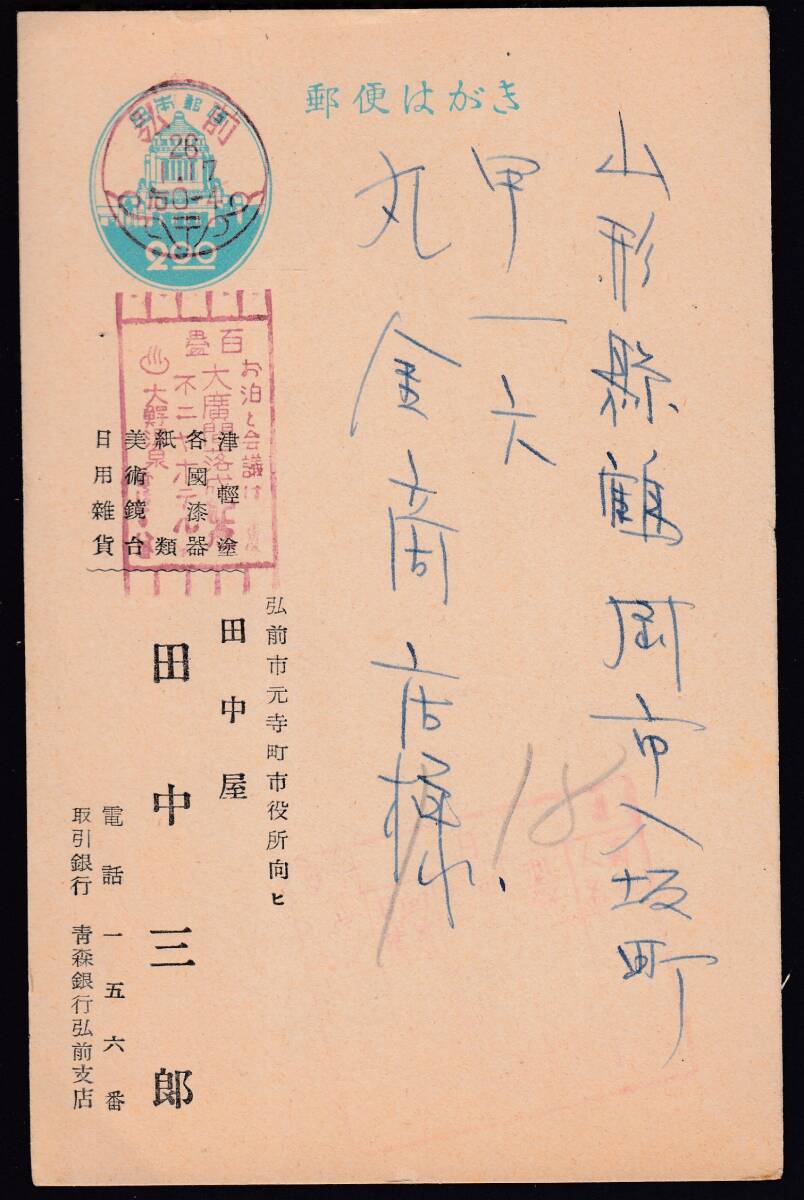 郵便はがき
山形縣鶴岡市八坂町
甲一六
丸金商店様
日本郵便
弘前
26
7
2.00
お泊と会議は
百畳
大廣間落成記
不二ヤホテル
♨大鰐温泉
津輕塗
各國漆器
紙類
美術鏡台
日用雜貨
弘前市元寺町市役所向ヒ
田中屋
田中三郎
電話一五六番
取引銀行 青森銀行弘前支店
18